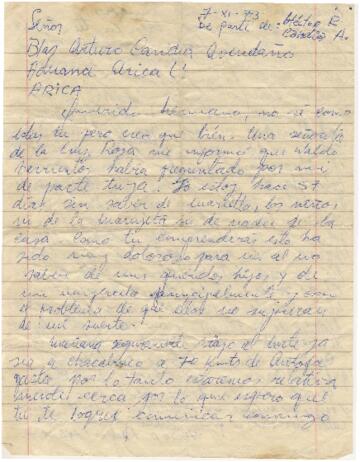 7-XI-73
Señor De parte de: Héctor R.
Blas Arturo Candia Avendaño
Aduana Arica
ARICA
Querido hermano, no sé como
estás tu pero creo que bien. Una señora
de la Cruz Roja me informó que Waldo
Barrientos había preguntado por mí
de parte tuya. Yo estoy hace 57
días sin saber de Mariella, los nietos
ni de la Maruxita ni de nadie de la
casa. Como tu comprenderás esto ha
sido muy doloroso para mi al no
saber de mis queridos hijos y de
mi principalmente y con
el problema de que ellos no supieran
de mi suerte.
Mañana viajo al norte
a Chacabuco a 70 Kmts de Antofa
gasta por lo tanto estaremos relativa
mente cerca por lo que espero que
tu te conmigo